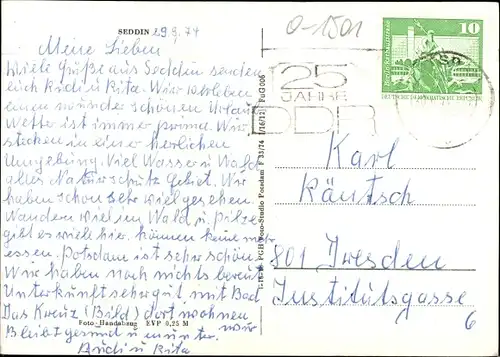 SEDDIN 29.9.74
0-1501
Meine Lieben
Viele Grüße aus Seddin senden
euch Rudi u Rita. Wir erleben
einen wunder schönen Urlaub
Wetter ist immer prima. Wir
stecken in einer herlichen
Umgebung. Viel Wasser u Wald
alles Naturschutz Gebiet. Wir
haben schon sehr viel gesehen.
Wandern viel im Wald u. Pilze
gibt es viele hier. können keine mehr
essen. Potsdam ist sehr schön
Wir haben noch nichts bereut
Unterkunft sehr gut mit Bad
Das Kreuz (Bild) dort wohnen
wir
Bleibt gesund u munter
Rudi u Rita
Foto-Handabzug EVP 0,25 M
PGH Foto-Studio Potsdam F 33/74
25
JAHRE
DDR
10
DEUTSCHE DEMOKRATISCHE REPUBLIK
Karl
Käntsch
801 Dresden
Institutsgasse
6